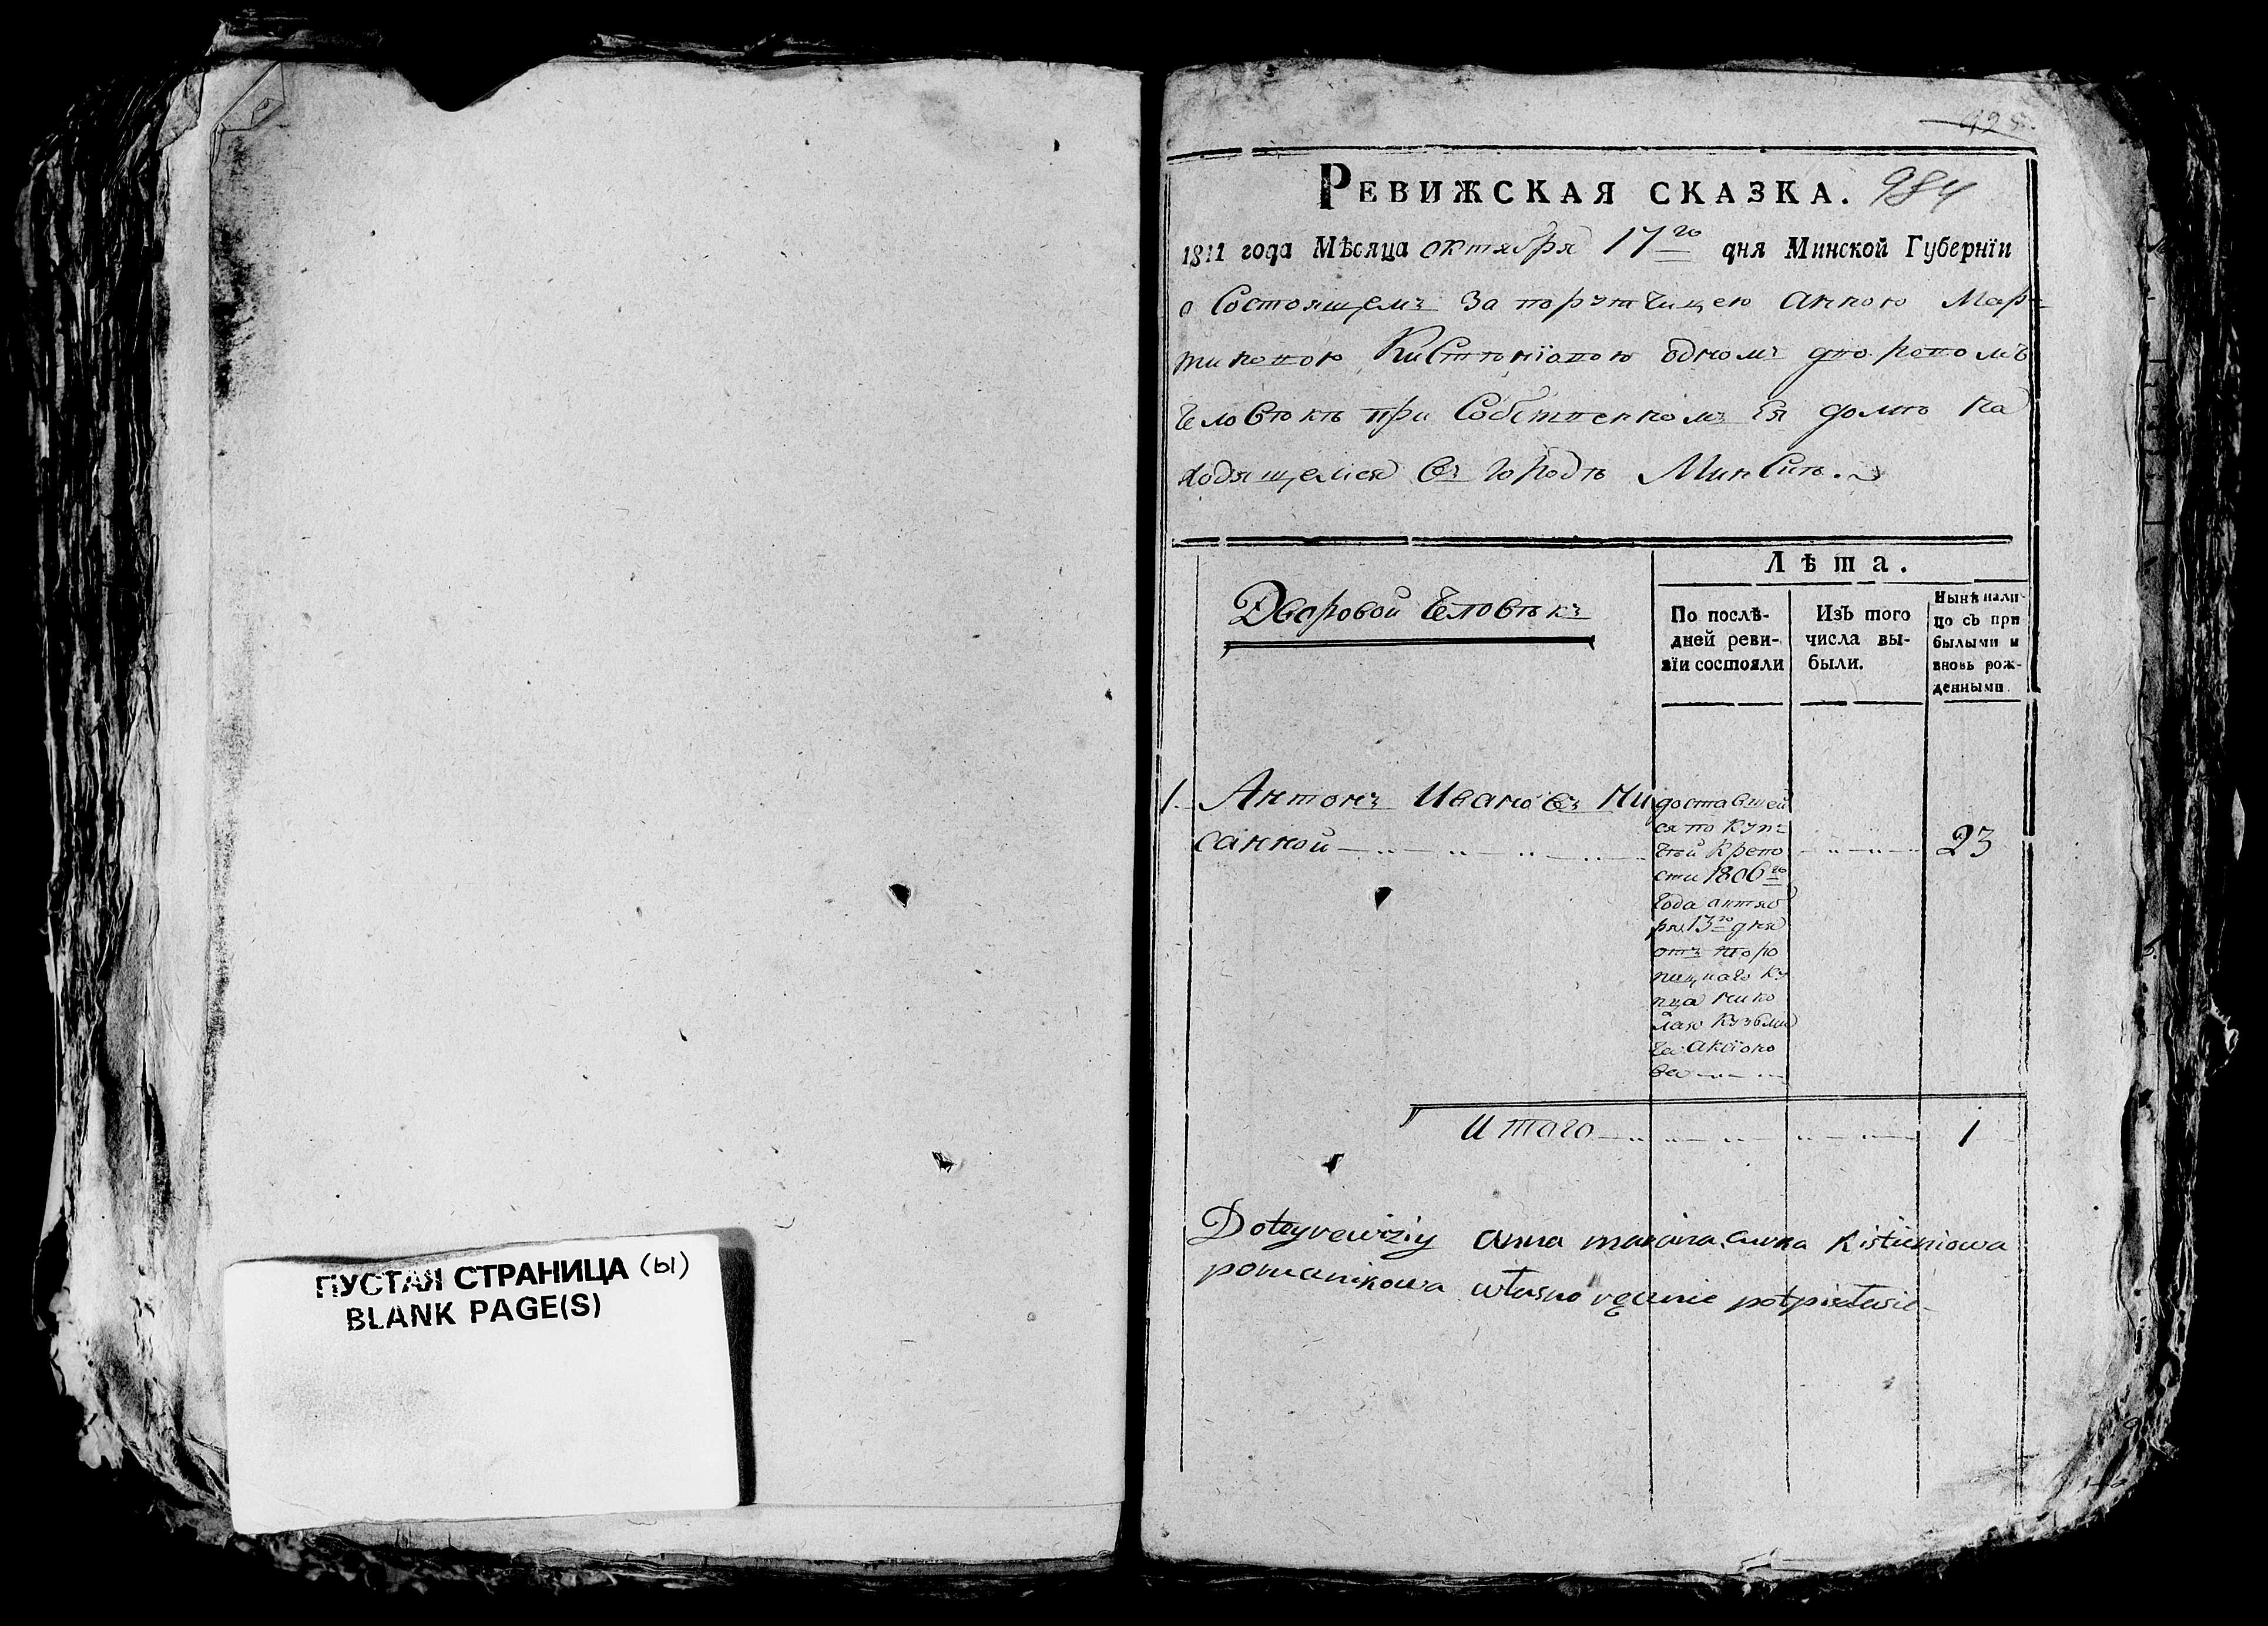 ПУСТАЯ СТРАНИЦА (ы)
BLANK PAGE(S)
РЕВИЖСКАЯ СКАЗКА. 984
1811 года Мѣсяца октября 17го дня Минской Губернїи
о Состоящемъ За порутчицею Анною Мар-
тиновою Кистюнїовою одномъ дворовомъ
человѣкѣ при Собственномъ Ея домѣ на
ходящемся въ городѣ Минскѣ.
Лѣта.
Дворовой человѣкъ
По послѣ-
дней реви-
зїи состояли
Изъ того
числа вы-
были.
Нынѣ нали-
цо съ при
былыми и
вновь рож-
денными.
1. Антонъ Ивановъ Ни
санной
доставшей
ся по куп-
чей крепо
сти 1806го
года октяб
ря 13го дня
отъ
купца Нико
лая Кузьми
ча Аксїоно
ва
23
Итого 1
Do tey rewiziy anna Kistieniowa
własno ręcznie potpisałasie